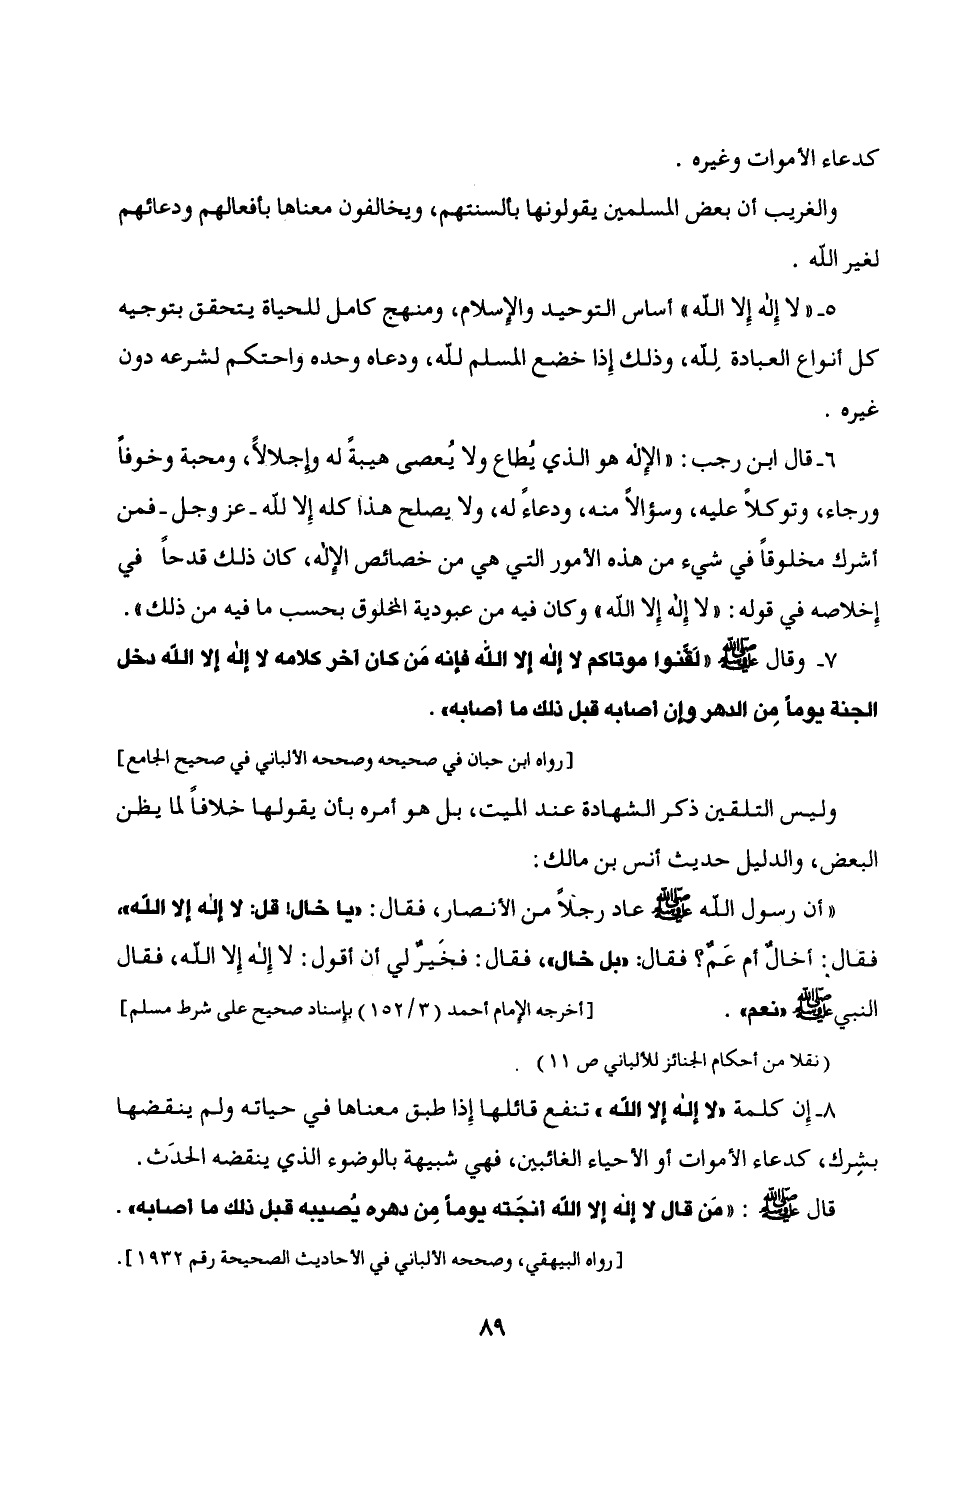 كدعاء الأموات وغيره .
والغريب أن بعض المسلمين يقولونها بألسنتهم، ويخالفون معناها بأفعالهم ودعائهم
لغير اللّه .
٥ـ «لا إِلٰه إِلا اللّه» أساس التوحيد والإِسلام، ومنهج كامل للحياة يتحقق بتوجيه
كل أنواع العبادة لِلّه، وذلك إِذا خضع المسلم للّه، ودعاه وحده واحتكم لشرعه دون
غيره .
٦ـ قال ابن رجب: «الإِلٰه هو الذي يُطاع ولا يُعصى هيبةً له وإِجلالاً، ومحبة وخوفاً
ورجاء، وتوكلاً عليه، وسؤالاً منه، ودعاءً له، ولا يصلح هذا كله إِلا للّه ـ عز وجل ـ فمن
أشرك مخلوقاً في شيء من هذه الأمور التي هي من خصائص الإِلٰه، كان ذلك قدحاً في
إِخلاصه في قوله: «لا إِلٰه إِلا اللّه» وكان فيه من عبودية المخلوق بحسب ما فيه من ذلك».
٧ـ وقال ﷺ «لَقِّنوا موتاكم لا إلٰه إلا اللّه فإنه مَن كان آخر كلامه لا إلٰه إلا اللّه دخل
الجنة يوماً مِن الدهر وإن أصابه قبل ذلك ما أصابه» .
[رواه ابن حبان في صحيحه وصححه الألباني في صحيح الجامع]
وليس التلقين ذكر الشهادة عند الميت، بل هو أمره بأن يقولها خلافاً لما يظن
البعض، والدليل حديث أنس بن مالك:
«أن رسول اللّه ﷺ عاد رجلاً من الأنصار، فقال: «يا خال! قل: لا إلٰه إلا اللّه»،
فقال: أخالٌ أم عَمٌ؟ فقال: «بل خال»، فقال: فخَيرٌ لي أن أقول: لا إِلٰه إِلا اللّه، فقال
النبي ﷺ «نعم» . [أخرجه الإِمام أحمد (٣/١٥٢) بإِسناد صحيح على شرط مسلم]
(نقلا من أحكام الجنائز للألباني ص ١١) .
٨ـ إِن كلمة «لا إلٰه إلا اللّه» تنفع قائلها إِذا طبق معناها في حياته ولم ينقضها
بشِرك، كدعاء الأموات أو الأحياء الغائبين، فهي شبيهة بالوضوء الذي ينقضه الحدَث.
قال ﷺ : «مَن قال لا إلٰه إلا اللّه أنجَته يوماً مِن دهره يُصيبه قبل ذلك ما أصابه» .
[رواه البيهقي، وصححه الألباني في الأحاديث الصحيحة رقم ١٩٣٢].
٨٩